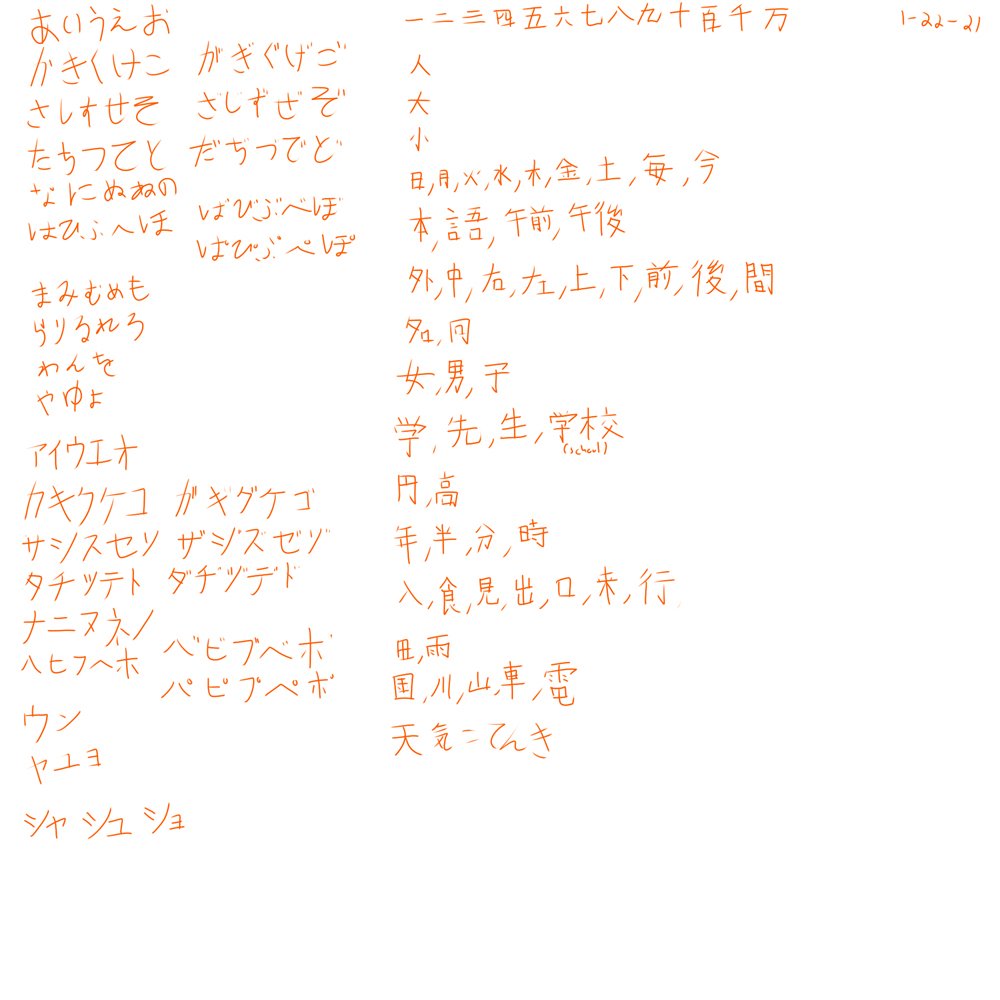 あいうえお
かきくけこ がぎぐげご
さしすせそ ざじずぜぞ
たちつてと だぢづでど
なにぬねの
はひふへほ ばびぶべぼ
ぱぴぷぺぽ
まみむめも
らりるれろ
わんを
やゆよ
アイウエオ
カキクケコ ガギグケゴ
サシスセソ ザジズゼゾ
タチツテト ダヂヅデド
ナニヌネノ
ハヒフヘホ バビブベボ
パピプペポ
ウン
ヤユヨ
シャ シュ ショ
一二三四五六七八九十百千万
人
大
小
日,月,火,水,木,金,土,毎,今
本,語,午前,午後
外,中,右,左,上,下,前,後,間
名,何
女,男,子
学,先,生,学校
(school)
円,高
年,半,分,時
入,食,見,出,口,来,行
雨
国,川,山,車,電
天気=てんき
1-22-21